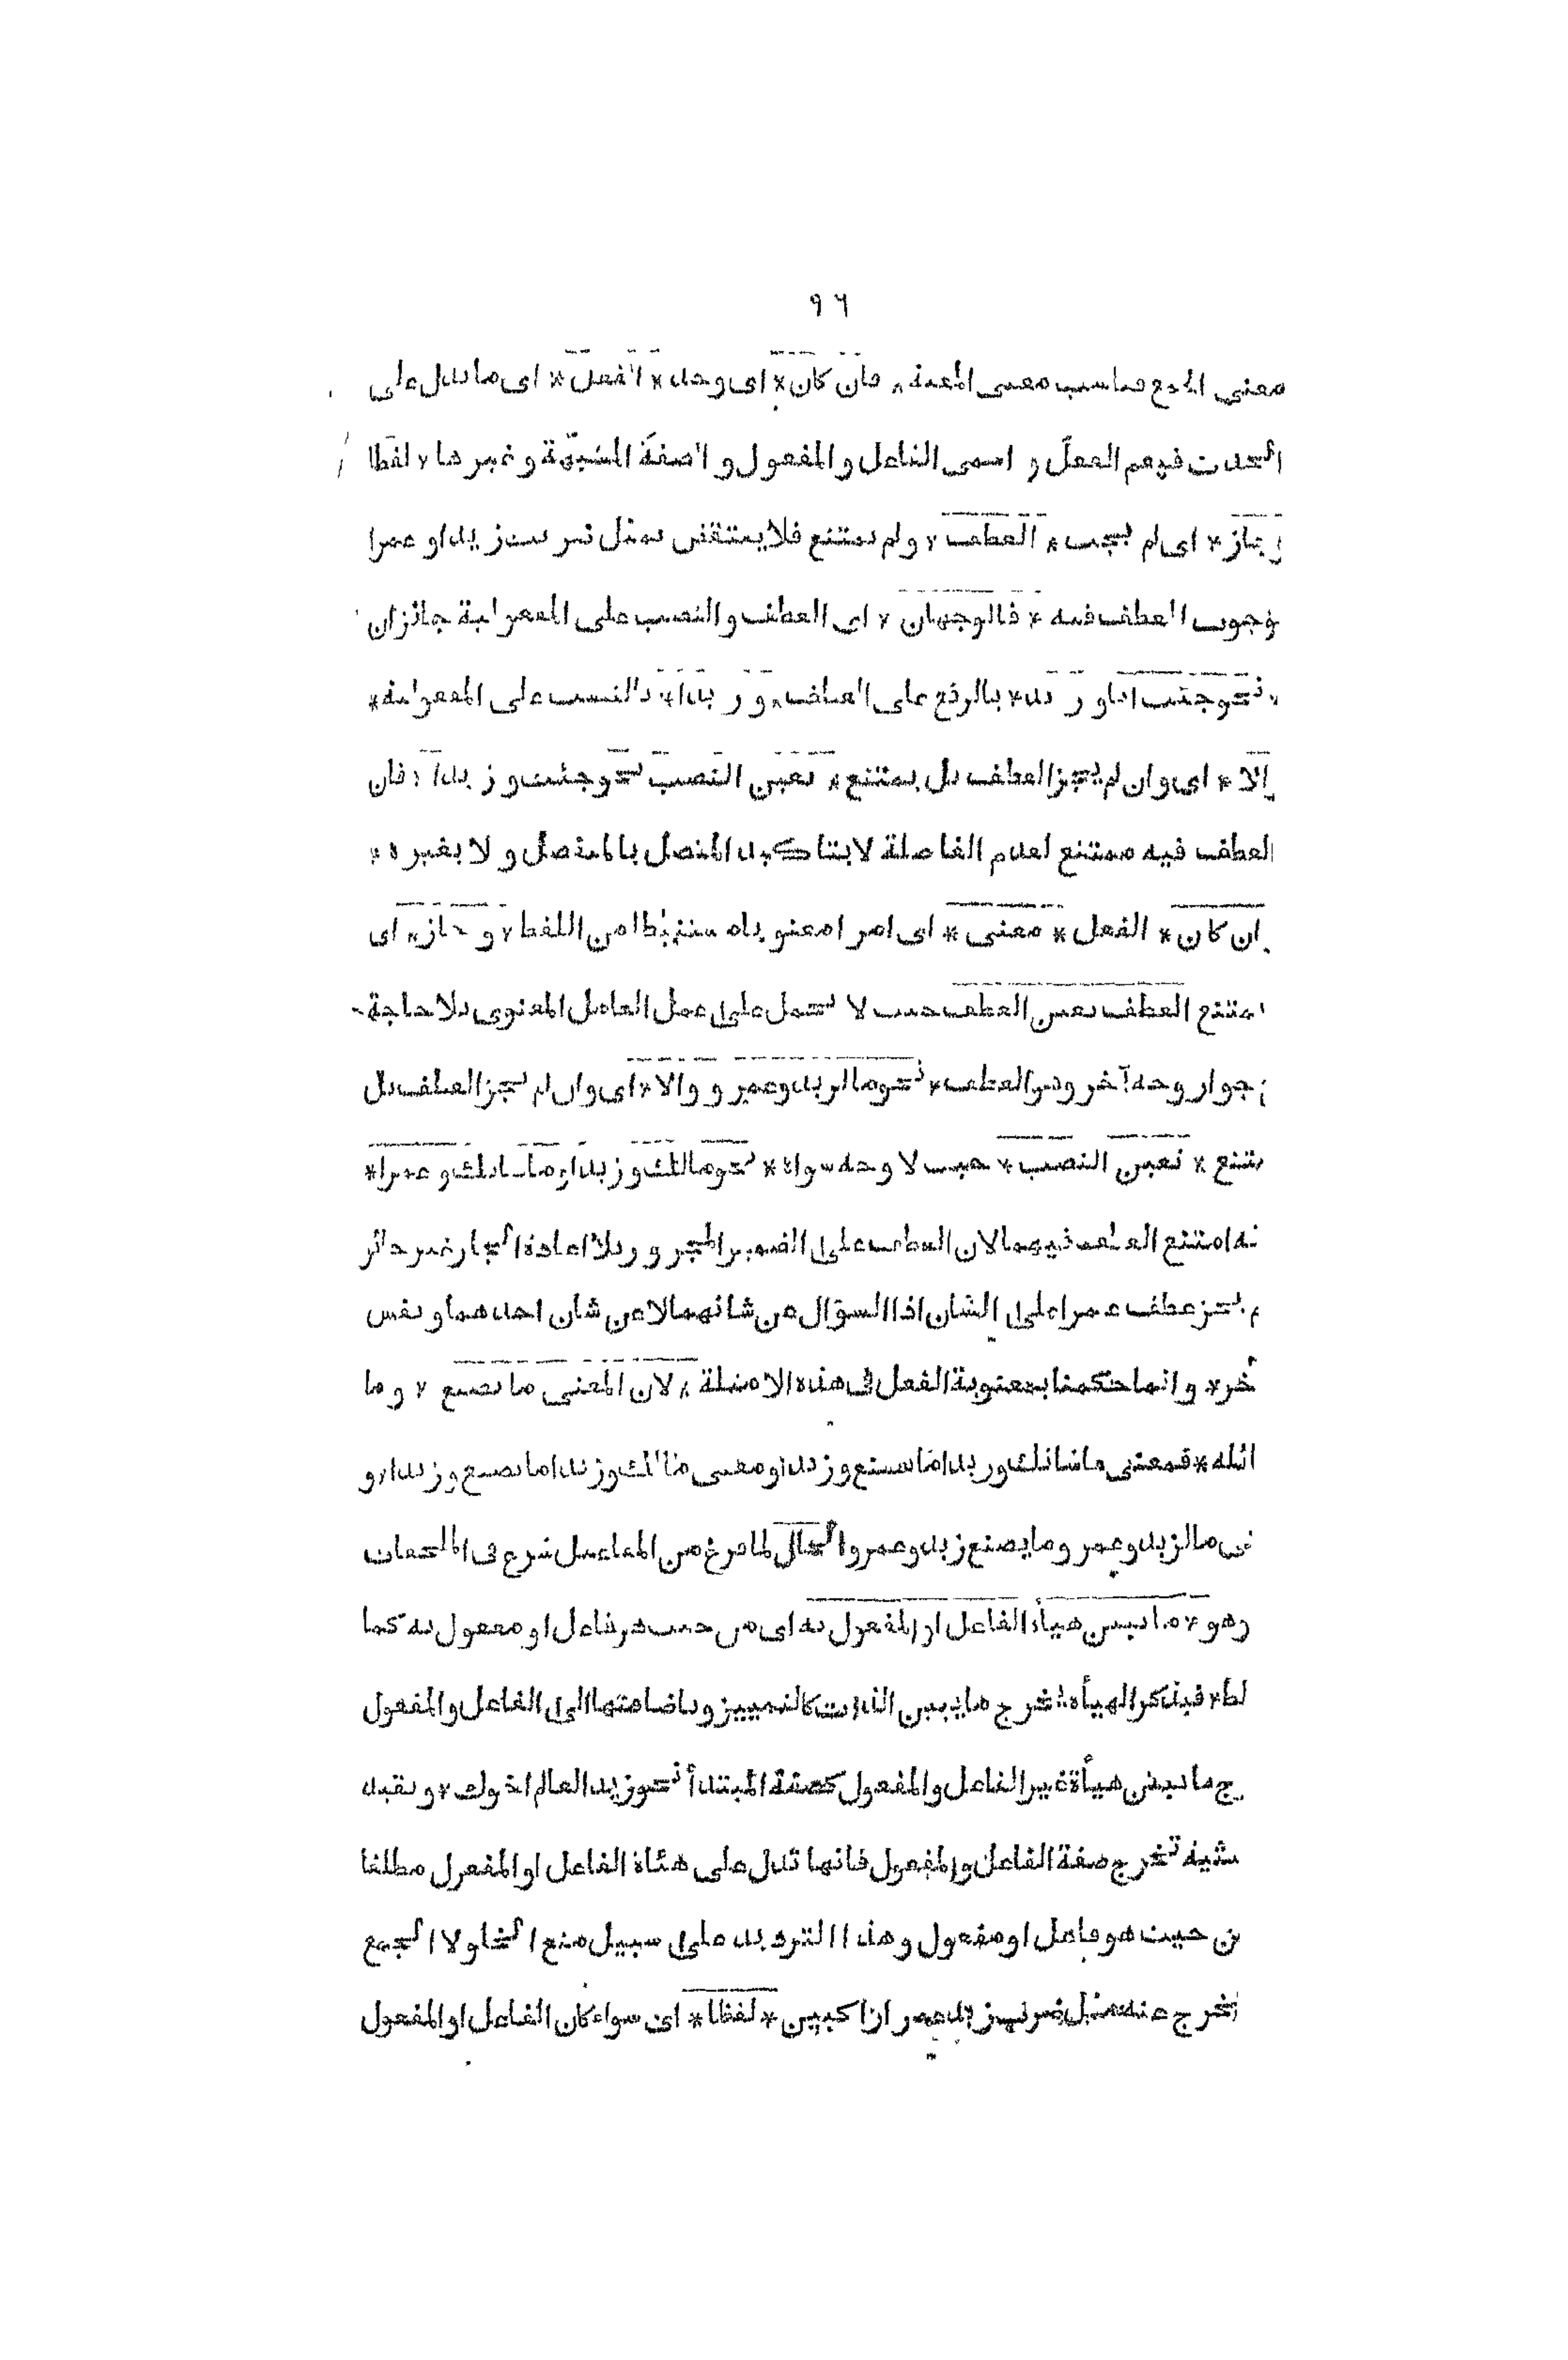 ٩٦
معنى الجمع مناسب معنى المعية * فان كان * اى وجد * الفعل * اى ما يدل على
الحدث فيعم الفعل و اسمى الفاعل والمفعول و الصفة المشبهة و غيرها * لفظا
و جاز * اى لم يجب * العطف * ولم يمتنع فلا ينتقض بمثل ضربت زيدا و عمرا
لوجوب العطف فيه * فالوجهان * اى العطف والنصب على المفعولية جائزان
* نحو جئت انا و زيد * بالرفع على العطف * و زيدا * بالنصب على المفعولية *
والا * اى وان لم يجز العطف بل يمتنع * تعين النصب نحو جئت و زيدا * فان
العطف فيه ممتنع لعدم الفاصلة لا بتاكيد المتصل بالمنفصل و لا بغيره *
و ان كان * الفعل * معنى * اى امرا معنويا مستنبطا من اللفظ * و جاز * اى
لم يمتنع العطف تعين العطف حيث لا يحمل على عمل العامل المعنوى بلا حاجة
مع جواز وجه آخر وهو العطف * نحو ما لزيد وعمرو و والا * اى وان لم يجز العطف بل
يمتنع * تعين النصب * حيث لا وجه سواه * نحو مالك و زيدا و ما شانك و عمرا *
فانه امتنع العطف فيهما لان العطف على الضمير المجرور بلا اعادة الجار غير جائز
و لم يجز عطف عمرا على الشان اذا السؤال عن شانهما لا عن شان احدهما و نفس
الآخر * و انما حكمنا بمعنوية الفعل فى هذه الامثلة * لان المعنى ما تصنع * و ما
يماثله * فمعنى ما شانك و زيدا ما تصنع و زيدا و معنى مالك و زيدا ما تصنع و زيدا و
معنى ما لزيد وعمرو وما يصنع زيد وعمرو الحال لما فرغ من المفاعيل شرع فى الملحقات
وهو * ما يبين هيأة الفاعل او المفعول به اى من حيث هو فاعل او مفعول به كما
فبذكر الهيأة يخرج ما يبين الذات كالتمييز و باضافتها الى الفاعل والمفعول
يخرج ما يبين هيأة غير الفاعل والمفعول كصفة المبتدأ نحو زيد العالم اخوك * و بقيد
الحيثية تخرج صفة الفاعل والمفعول فانها تدل على هيأة الفاعل او المفعول مطلقا
من حيث هو فاعل او مفعول وهذا الترديد على سبيل منع الخلو لا الجمع
فلا يخرج عنه مثل ضرب زيد عمرا راكبين * لفظا * اى سواء كان الفاعل او المفعول